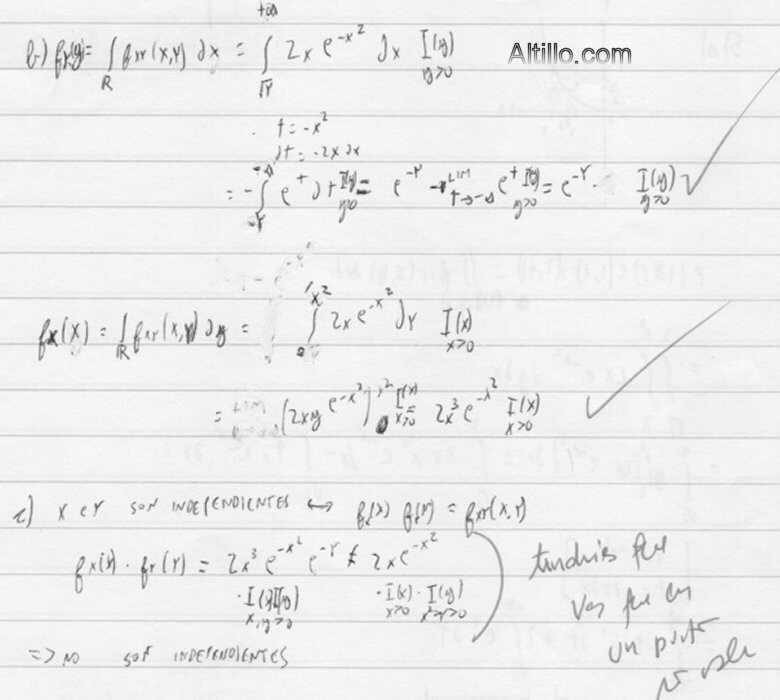 b) f_Y(y) = ∫_R f_XY(x,y) dx = ∫_{√Y}^{+∞} 2x e^{-x²} dx I(y)_{y>0}
Altillo.com
t = -x²
dt = -2x dx
= -∫_{-Y}^{-∞} e^t dt I(y)_{y>0} = e^{-Y} - LIM_{t→-∞} e^t I(y)_{y>0} = e^{-Y} · I(y)_{y>0}
f_X(x) = ∫_R f_XY(x,y) dy = ∫_0^{x²} 2x e^{-x²} dy I(x)_{x>0}
= (2xy e^{-x²})|_0^{x²} I(x)_{x>0} = 2x³ e^{-x²} I(x)_{x>0}
c) X e Y SON INDEPENDIENTES ↔ f_X(x) f_Y(y) = f_XY(x,y)
f_X(x) · f_Y(y) = 2x³ e^{-x²} e^{-Y} ≠ 2x e^{-x²}
· I(x) I(y)_{x,y>0} · I(x)_{x>0} · I(y)_{x²>y>0}
tendrías que
ver que en
un punto
no vale
=> NO SON INDEPENDIENTES